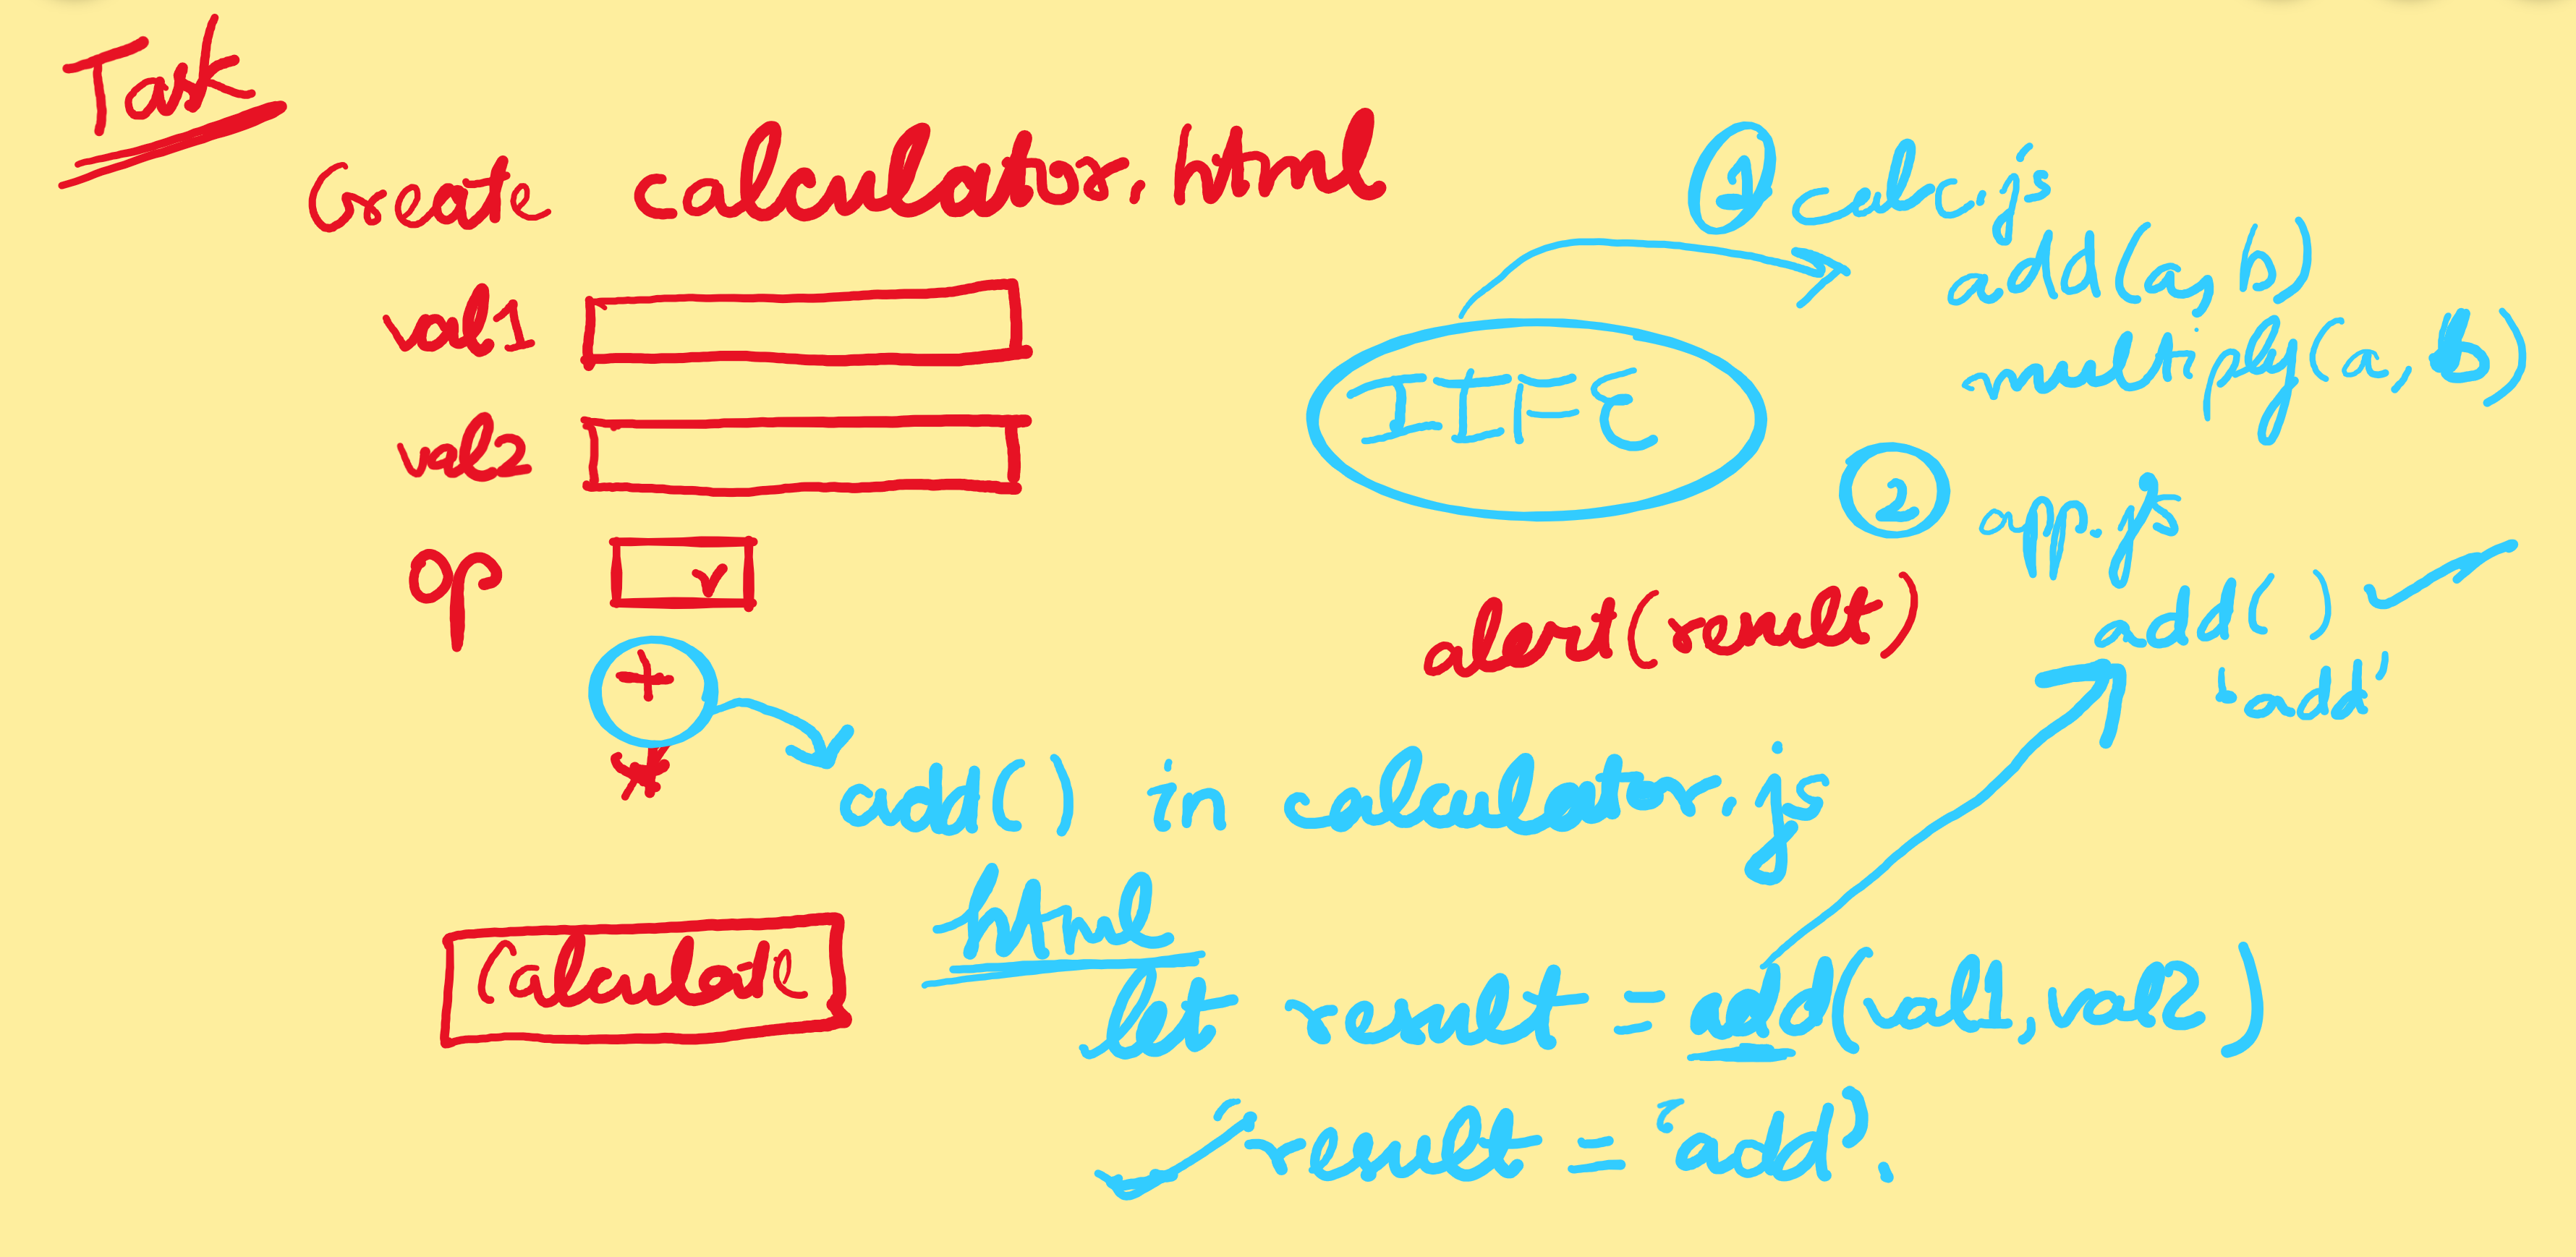 Task
Create calculator.html
val1
val2
op
+
*
Calculate
IIFE
1 calc.js
add(a, b)
multiply(a, b)
2 app.js
add() ✓
'add'
alert(result)
add() in calculator.js
html
let result = add(val1, val2)
✓ result = 'add'.